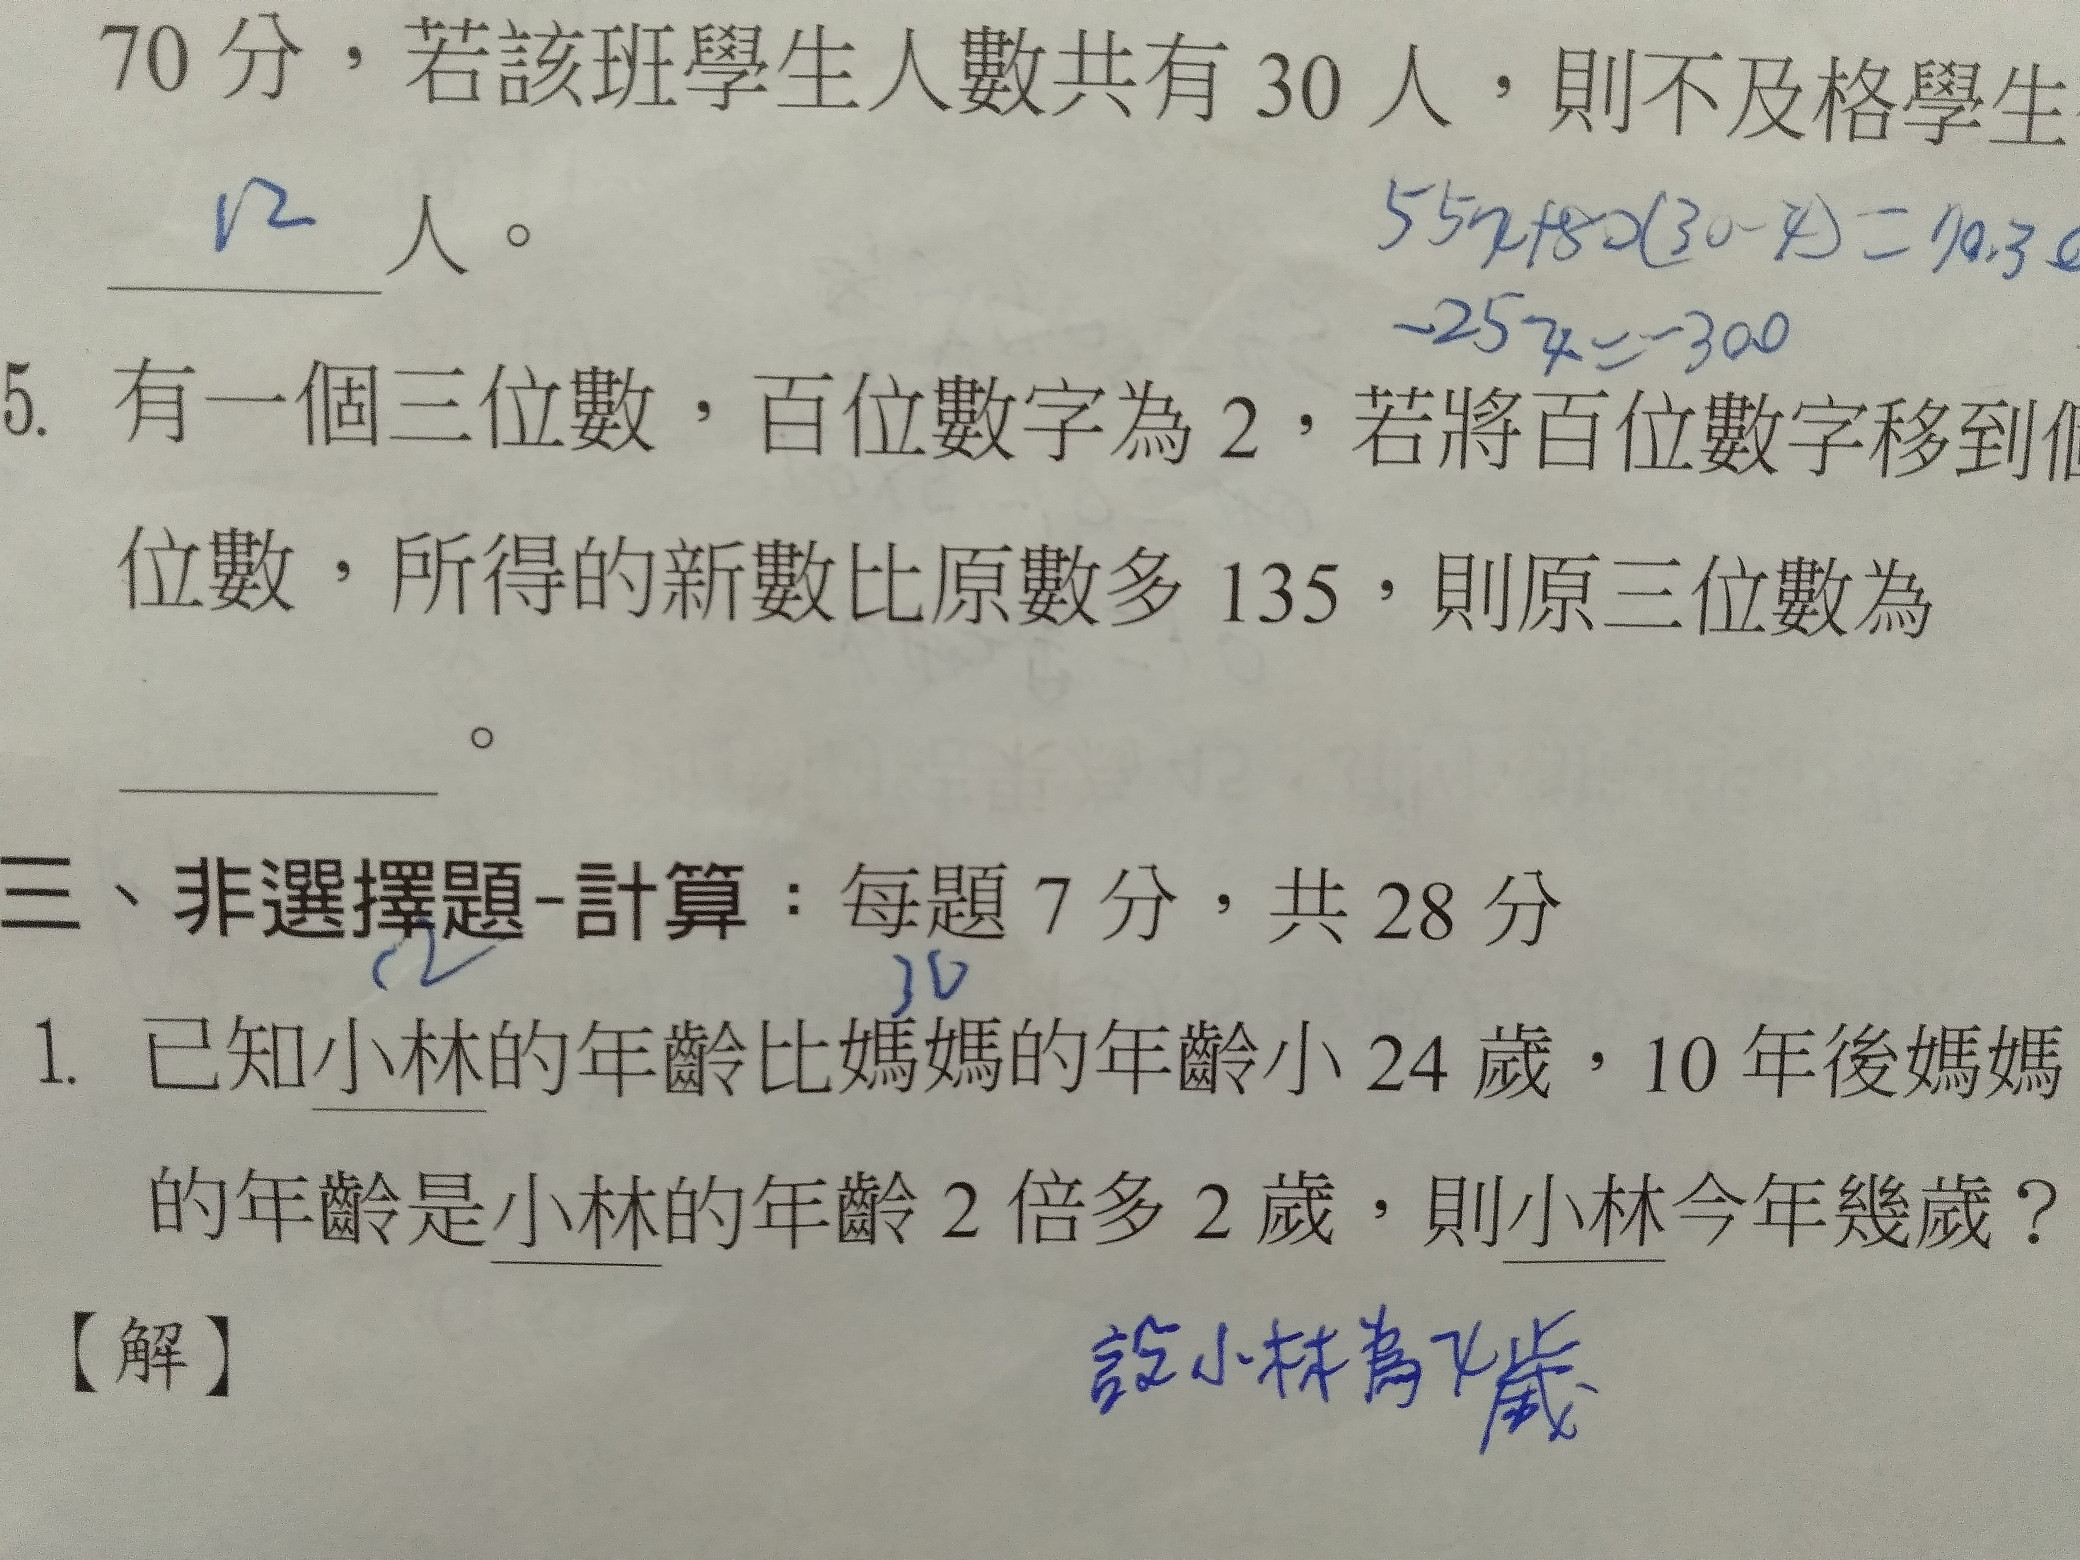 70 分，若該班學生人數共有 30 人，則不及格學生
12 人。
55x+80(30-x)=70.30
-25x=-300
5. 有一個三位數，百位數字為 2，若將百位數字移到個
位數，所得的新數比原數多 135，則原三位數為
。
三、非選擇題-計算：每題 7 分，共 28 分
30
1. 已知小林的年齡比媽媽的年齡小 24 歲，10 年後媽媽
的年齡是小林的年齡 2 倍多 2 歲，則小林今年幾歲？
【解】
設小林為x歲